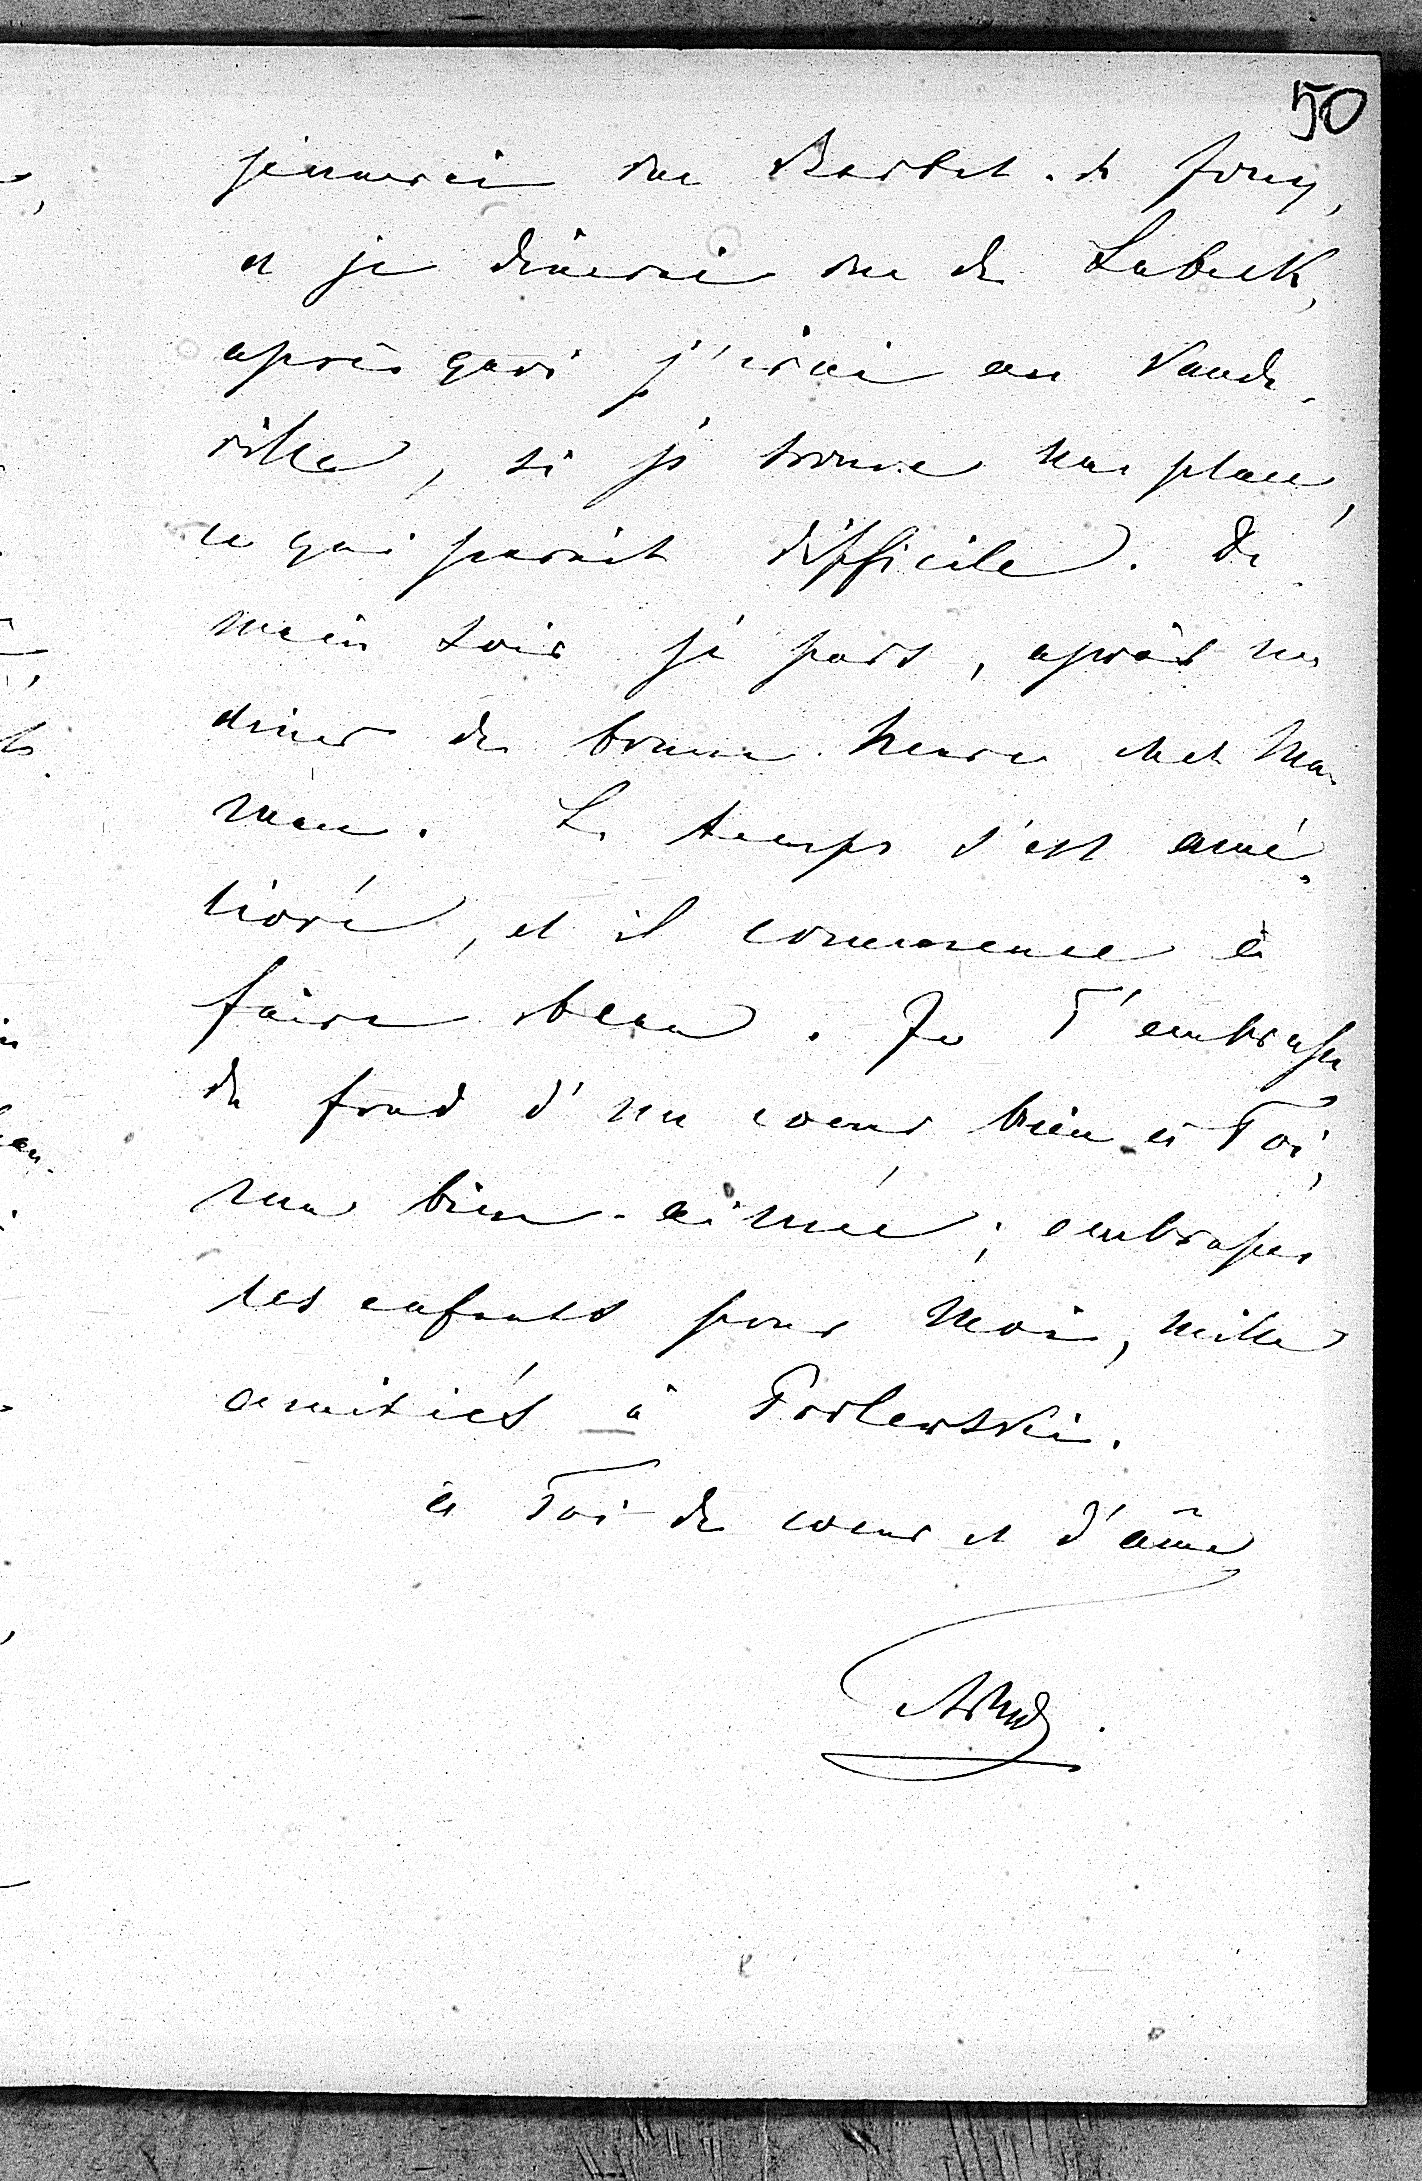 50
jeunerai rue Barbet. de Jouy,
et je dînerai rue de Lubeck,
après quoi j'irai au Vaude-
ville, si je trouve une place,
ce qui parait difficile. De-
main soir je pars, après un
diner de bonne heure chez Ma-
man. Le temps s'est amé-
lioré, et il commence à
faire beau. Je T'embrasse
du fond d'un coeur bien à Toi,
ma bien-aimée; embrasse
les enfants pour moi, mille
amitiés à
à Toi de coeur et d'âme